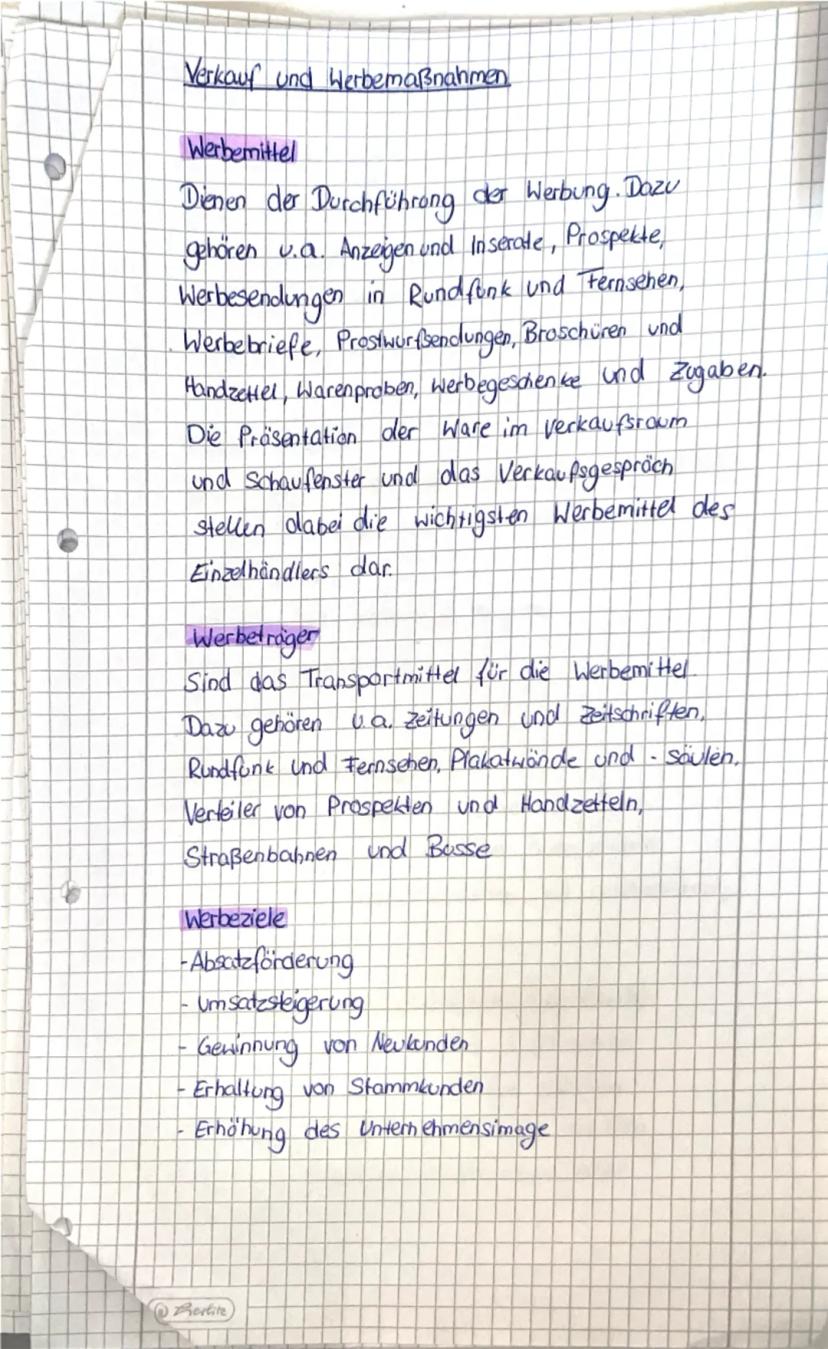 Verkauf und Werbemaßnahmen
Werbemittel
Dienen der Durchführung der Werbung. Dazu
gehören u.a. Anzeigen und Inserate, Prospekte,
Werbesendungen in Rundfunk und Fernsehen,
Werbebriefe, Prostwurfsendungen, Broschüren und
Handzettel, Warenproben, Werbegeschenke und Zugaben.
Die Präsentation der Ware im Verkaufsraum
und Schaufenster und das Verkaufsgespräch
stellen dabei die wichtigsten Werbemittel des
Einzelhändlers dar.
Werbeträger
Sind das Transportmittel für die Werbemittel.
Dazu gehören u.a. Zeitungen und Zeitschriften,
Rundfunk und Fernsehen, Plakatwände und -säulen,
Verteiler von Prospekten und Handzetteln,
Straßenbahnen und Busse
Werbeziele
- Absatzförderung
- Umsatzsteigerung
- Gewinnung von Neukunden
- Erhaltung von Stammkunden
- Erhöhung des Unternehmensimage